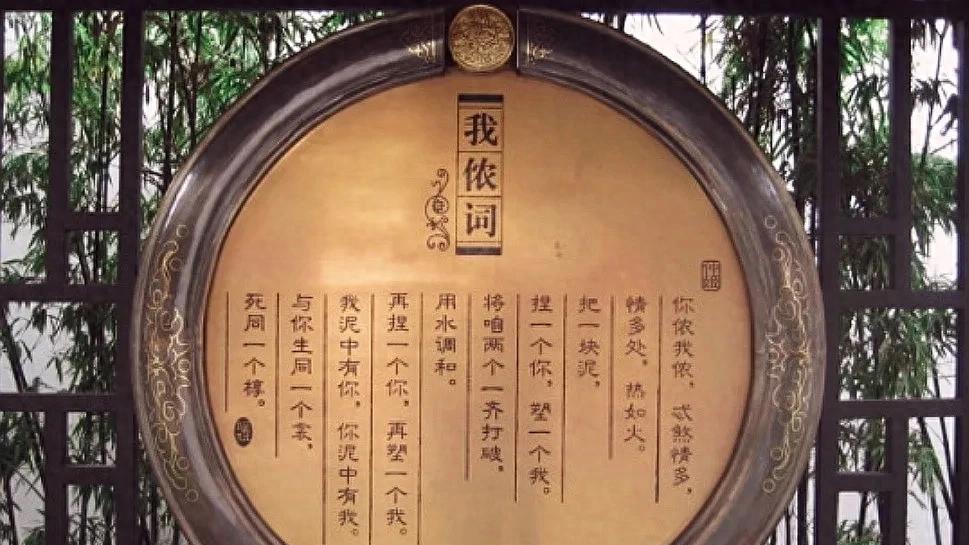 我侬词
仲姬
你侬我侬，忒煞情多，
情多处，热如火。
把一块泥，
捏一个你，塑一个我。
将咱两个一齐打破，
用水调和。
再捏一个你，再塑一个我。
我泥中有你，你泥中有我。
与你生同一个衾，
死同一个椁。